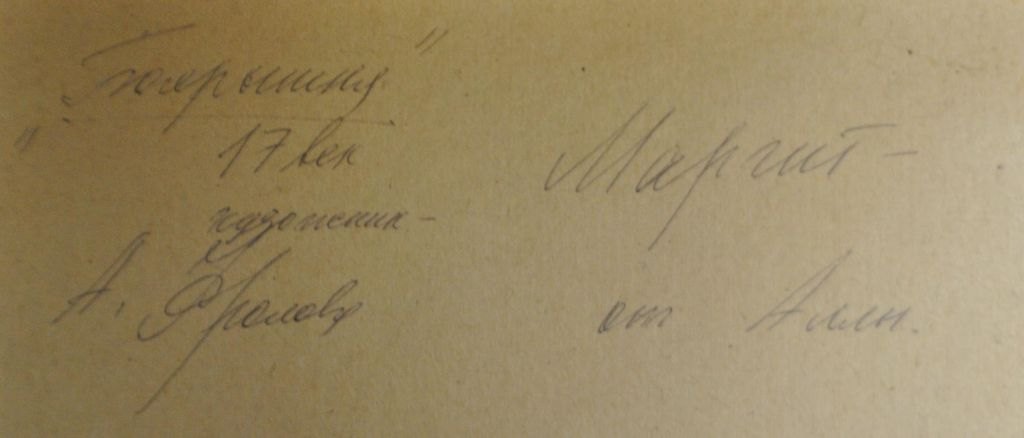 „Боярышня"
17 век
художник-
А. Фролова
Маргит-
от Аллы.